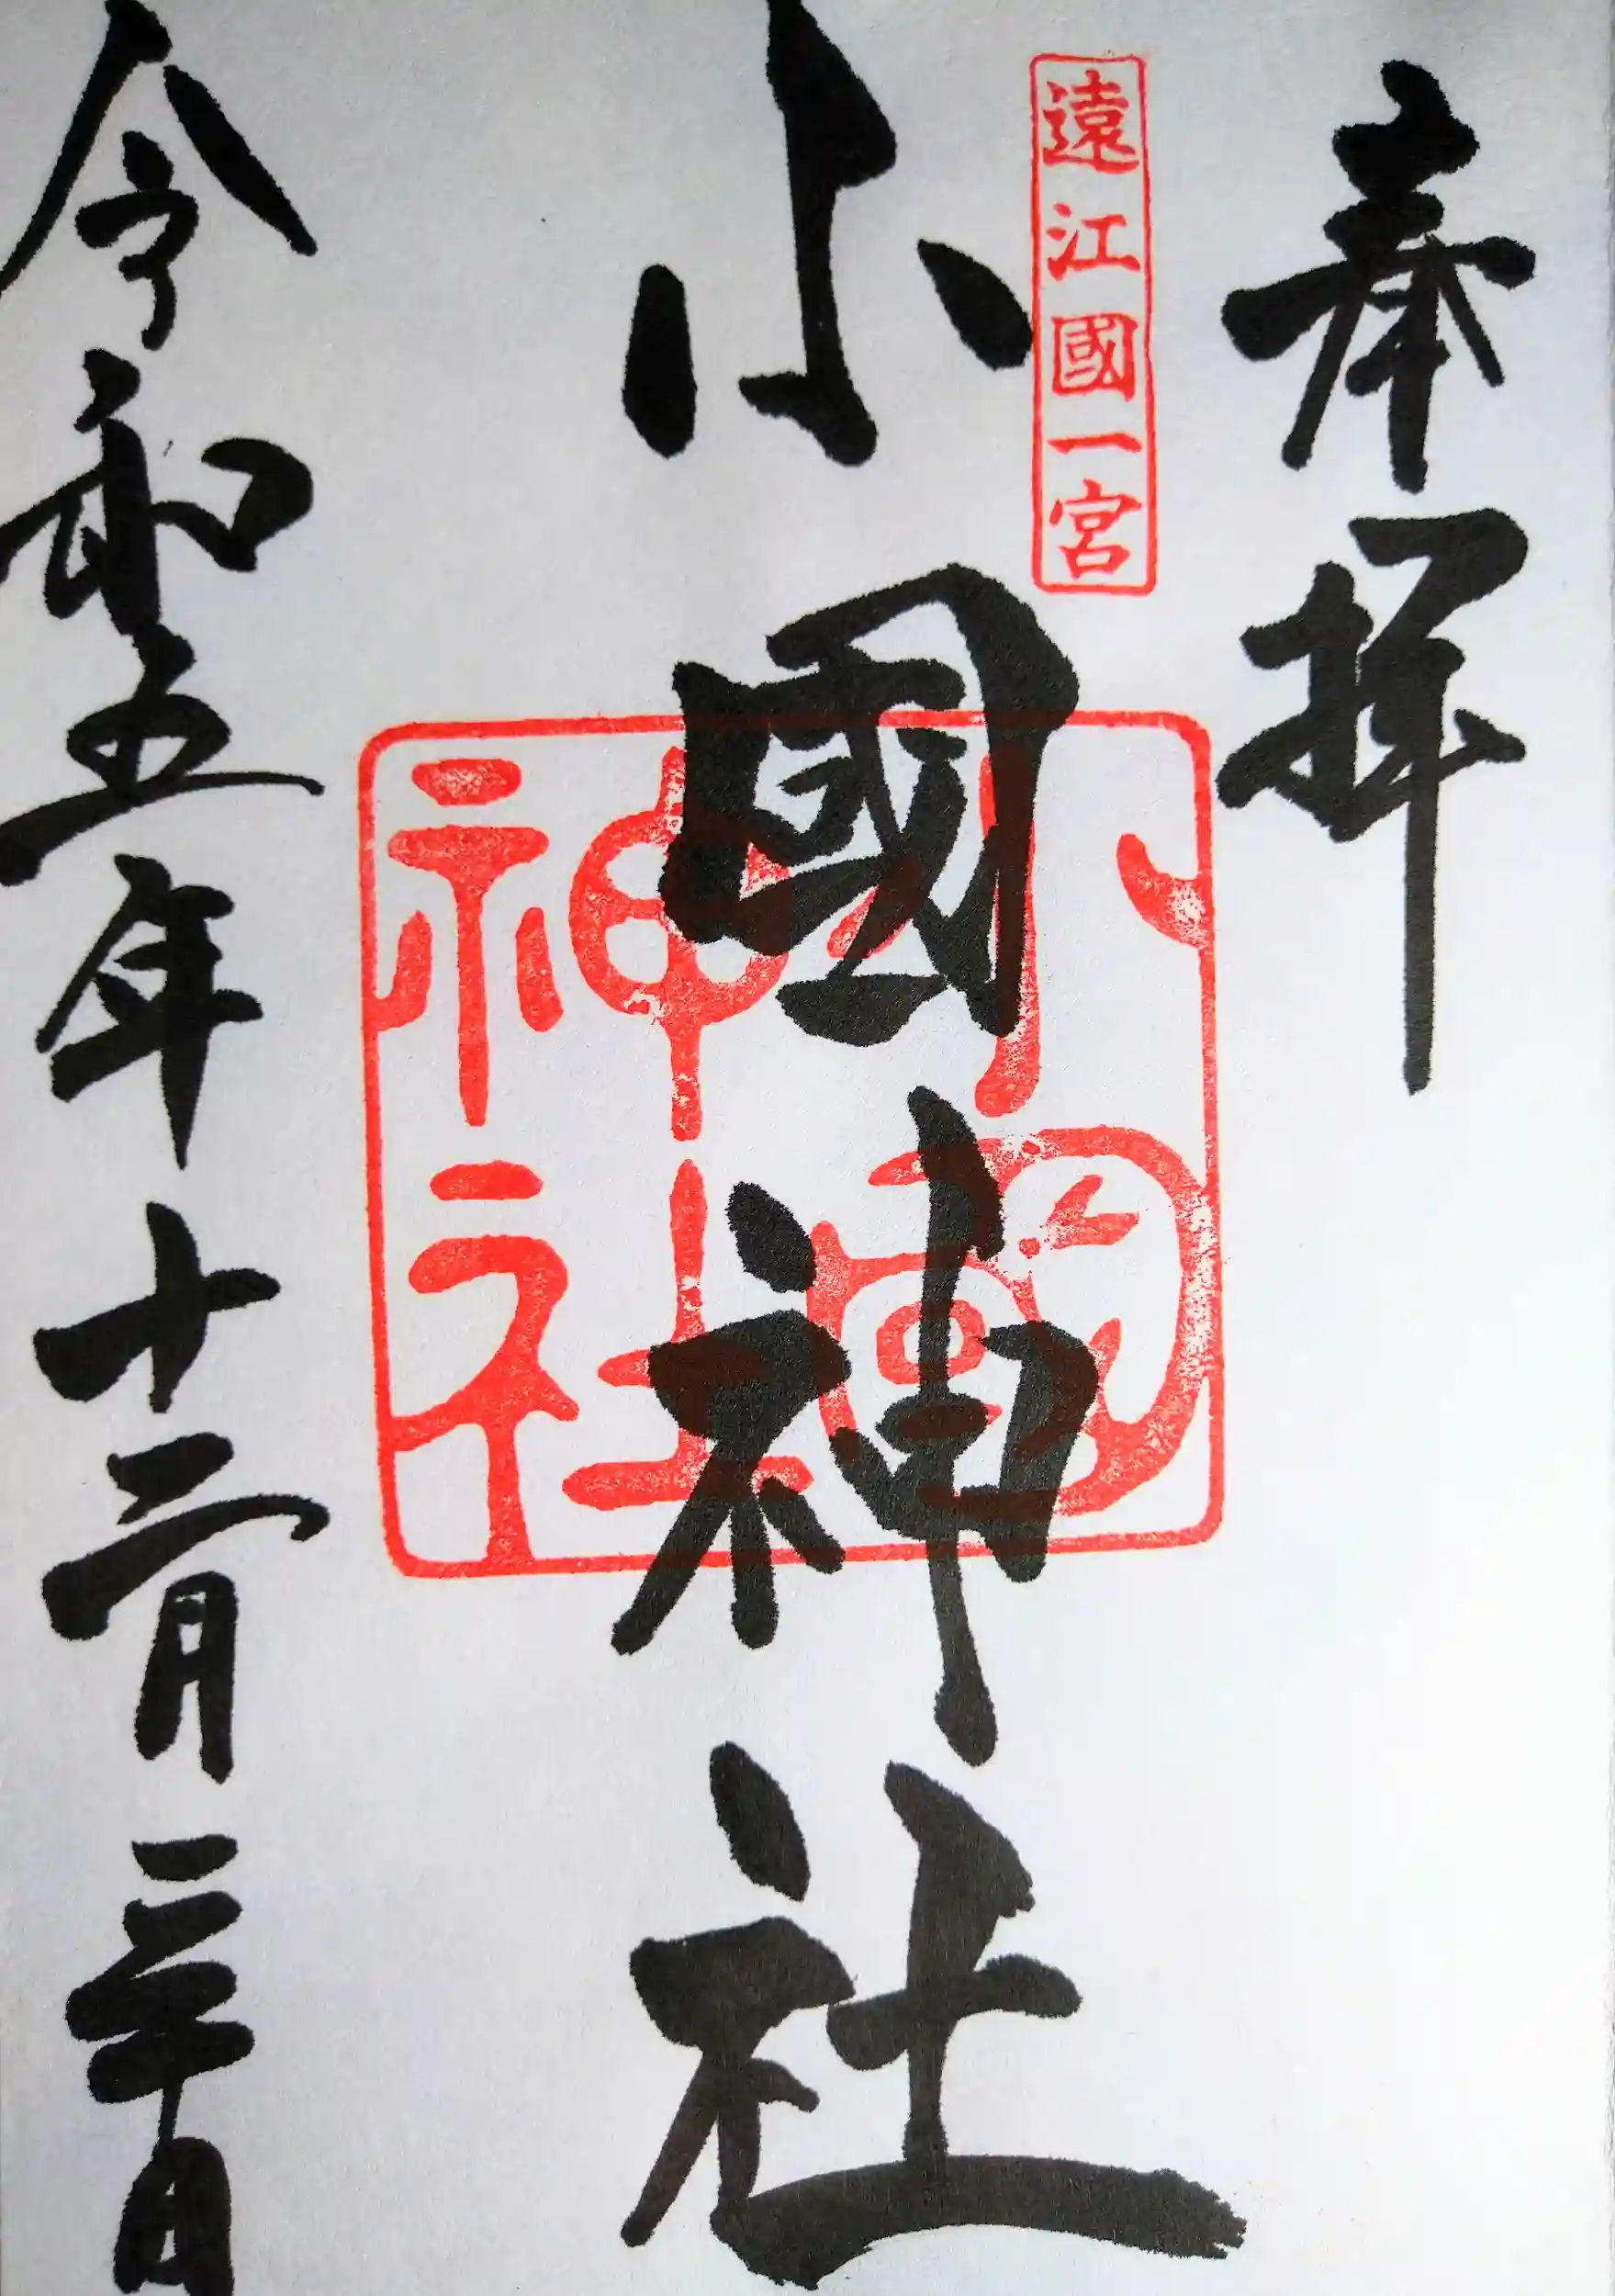 奉拝
遠江國一宮
小國神社
小國
神社
令和五年十二月三十日